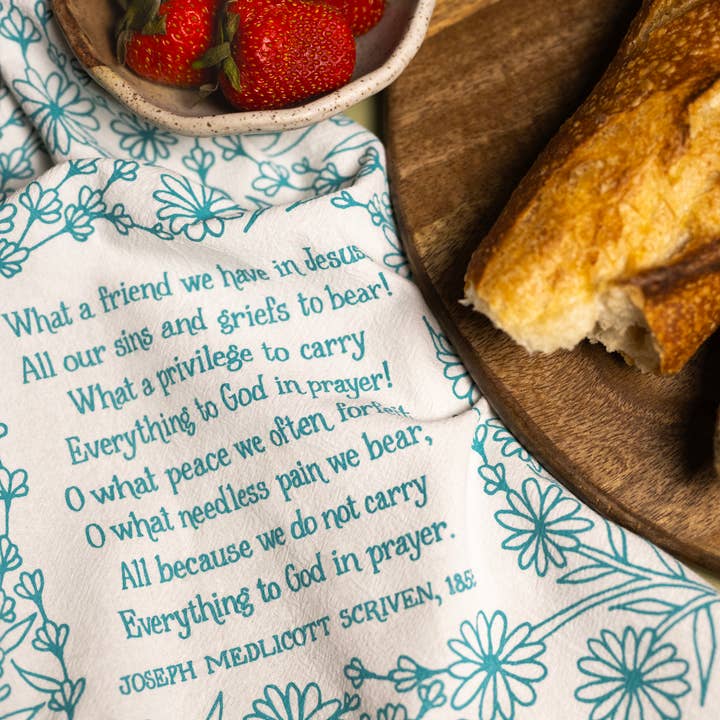 What a friend we have in Jesus
All our sins and griefs to bear!
What a privilege to carry
Everything to God in prayer!
O what peace we often
O what needless pain we bear,
All because we do not carry
Everything to God in prayer.
JOSEPH MEDLICOTT SCRIVEN,